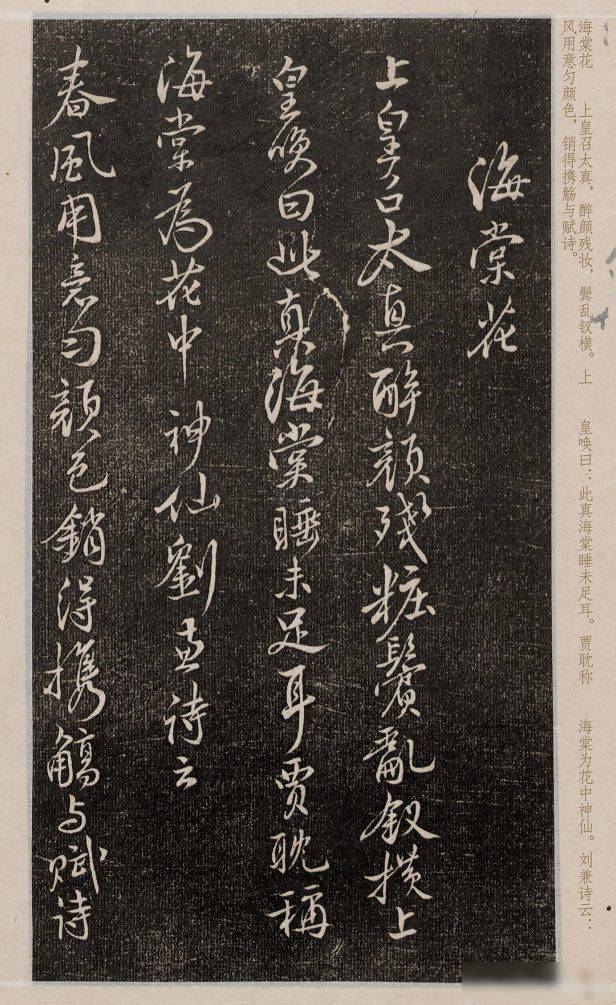 海棠花 上皇召太真，醉颜残妆，鬓乱钗横。上 皇唤曰：此真海棠睡未足耳。贾耽称 海棠为花中神仙。刘兼诗云：
风用意匀颜色，销得携觞与赋诗。
海棠花
上皇召太真醉顔殘粧鬢亂釵横上
皇喚曰此真海棠睡未足耳賈耽稱
海棠為花中神仙劉兼诗云
春風用意匀顔色銷得携觴与赋诗